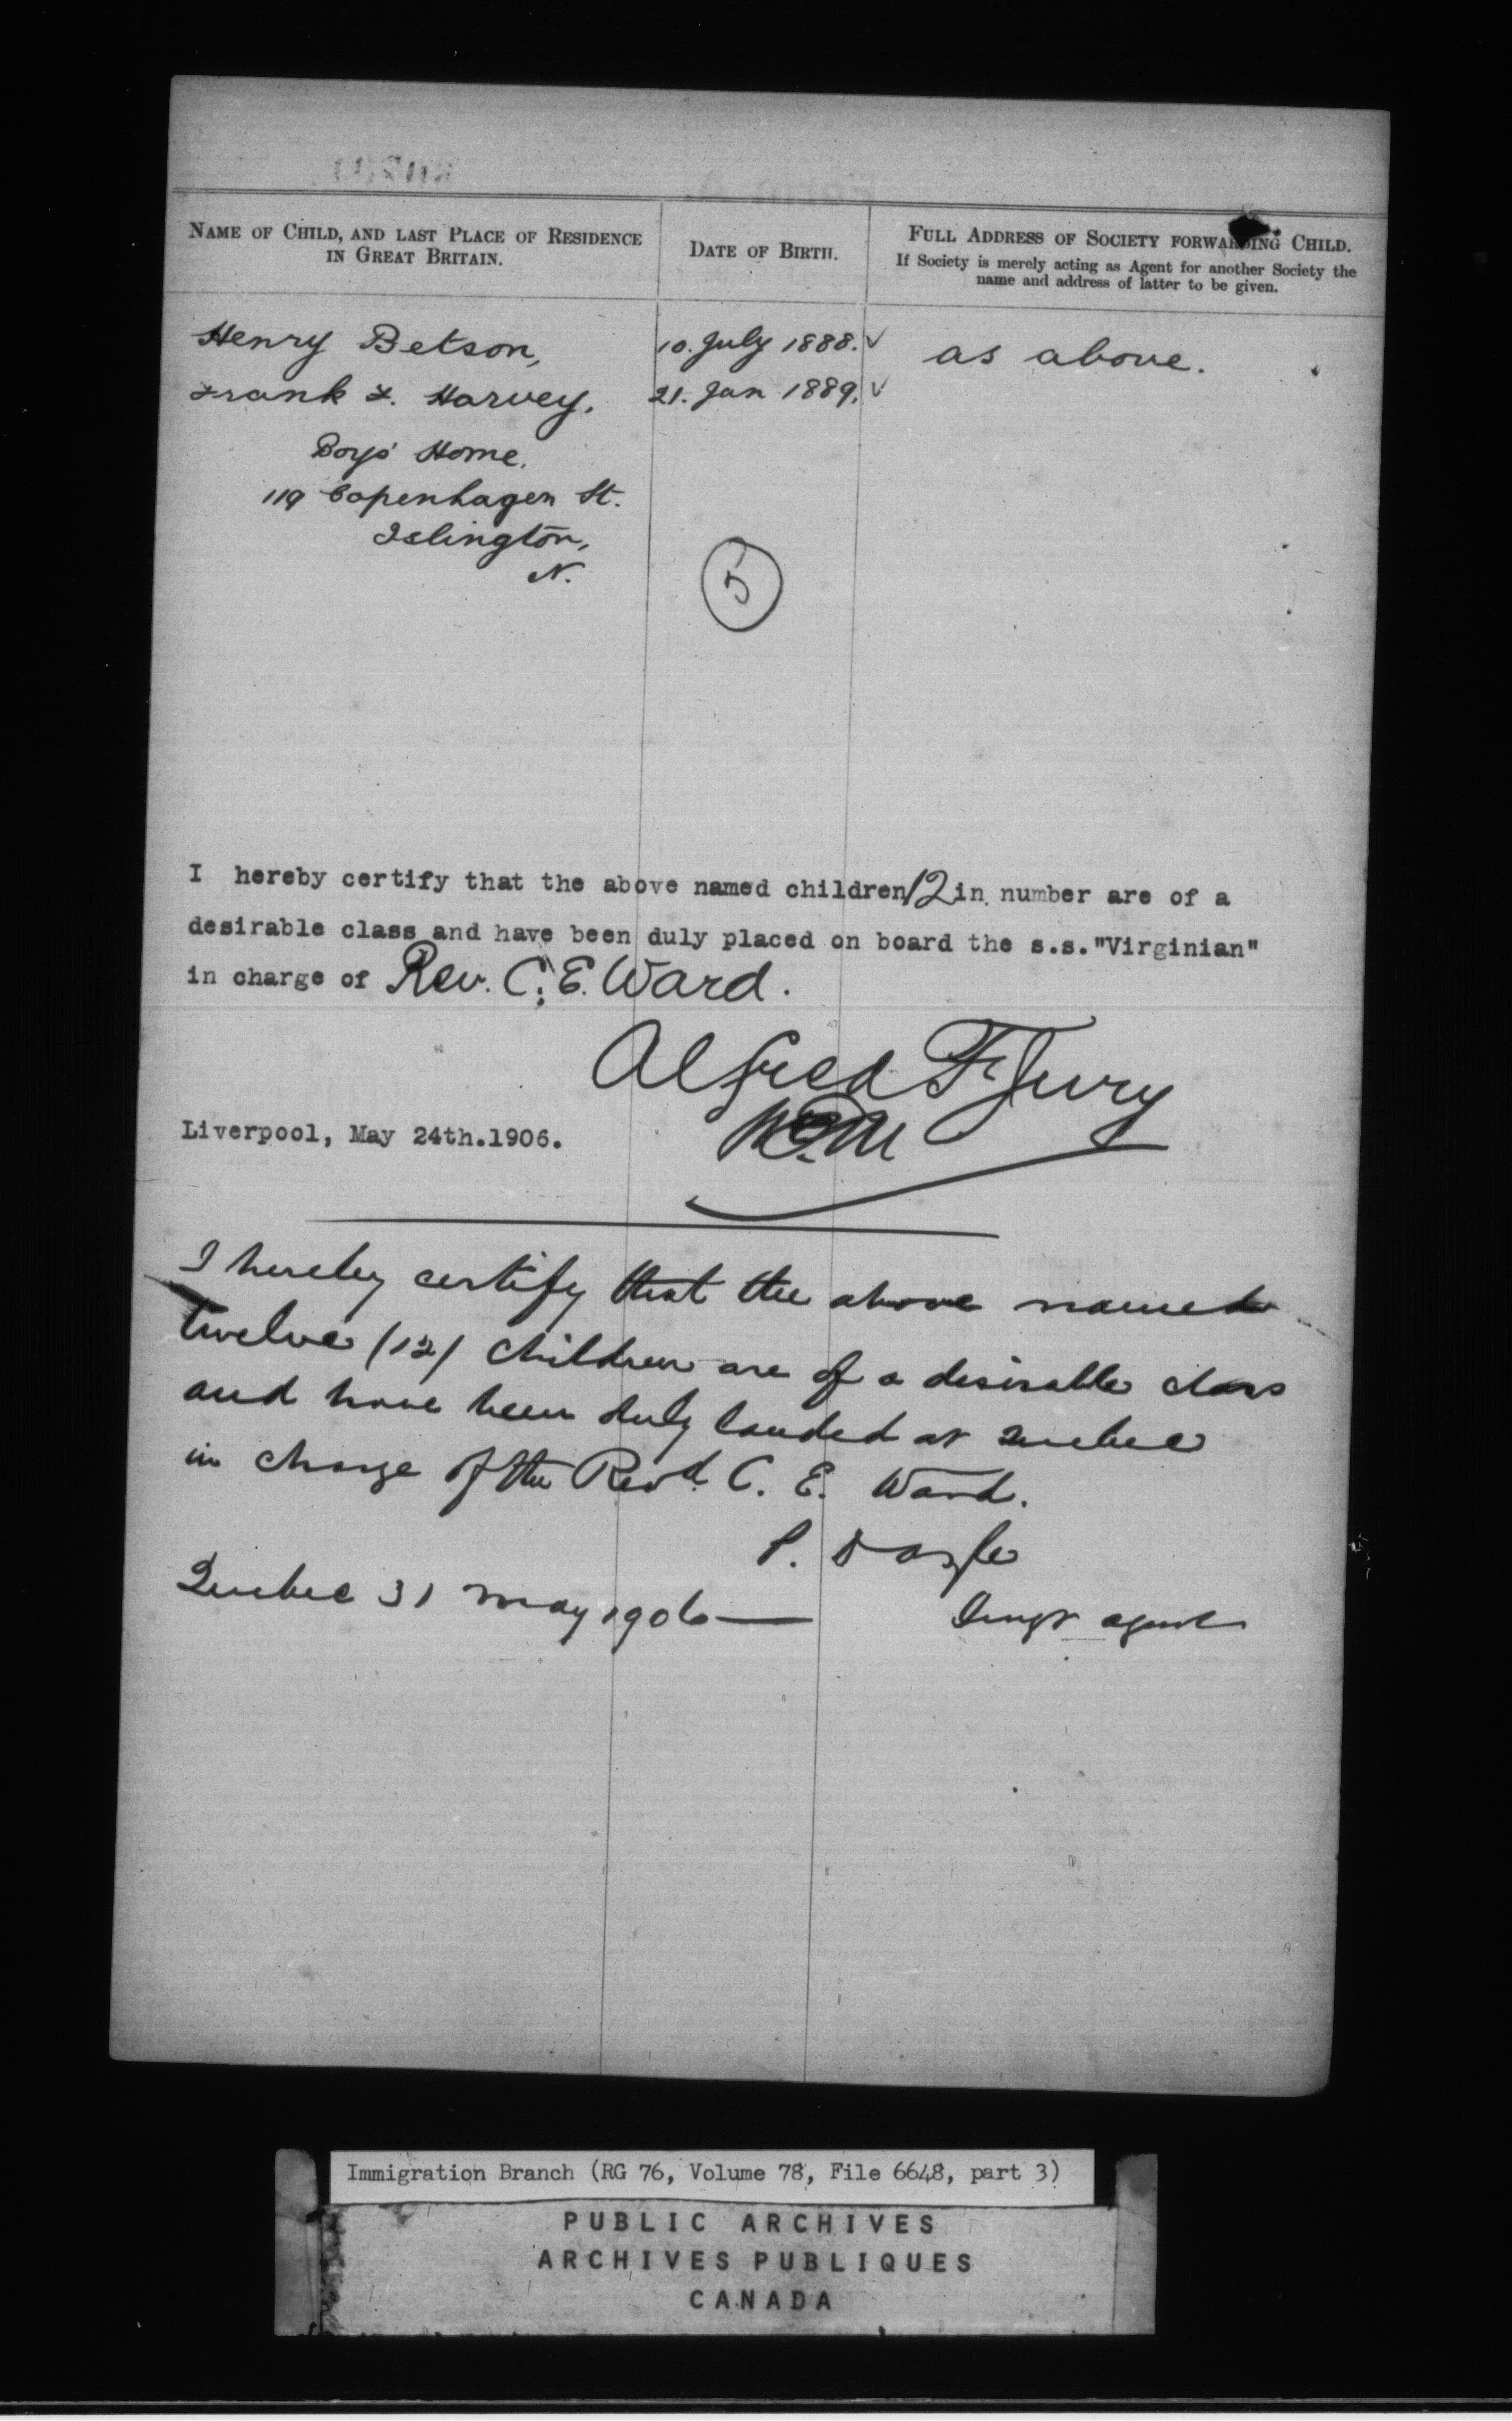 NAME OF CHILD, AND LAST PLACE OF RESIDENCE
IN GREAT BRITAIN.
DATE OF BIRTH.
FULL ADDRESS OF SOCIETY FORWARDING CHILD.
If Society is merely acting as Agent for another Society the
name and address of latter to be given.
Henry Betson, 10. July 1888. ✓ as above.
Frank F. Harvey, 21. Jan 1889. ✓
Boys' Home.
119 Copenhagen St.
Islington,
N.
5
I hereby certify that the above named children 12 in number are of a
desirable class and have been duly placed on board the s.s."Virginian"
in charge of Rev. C. E. Ward.
Alfred F. Jury
Liverpool, May 24th.1906.
I hereby certify that the above named
twelve (12) children are of a desirable class
and have been duly landed at Quebec
in charge of the Revd. C. E. Ward.
P. Doyle
Quebec 31 May 1906 — Imgr agent
Immigration Branch (RG 76, Volume 78, File 6648, part 3)
PUBLIC ARCHIVES
ARCHIVES PUBLIQUES
CANADA